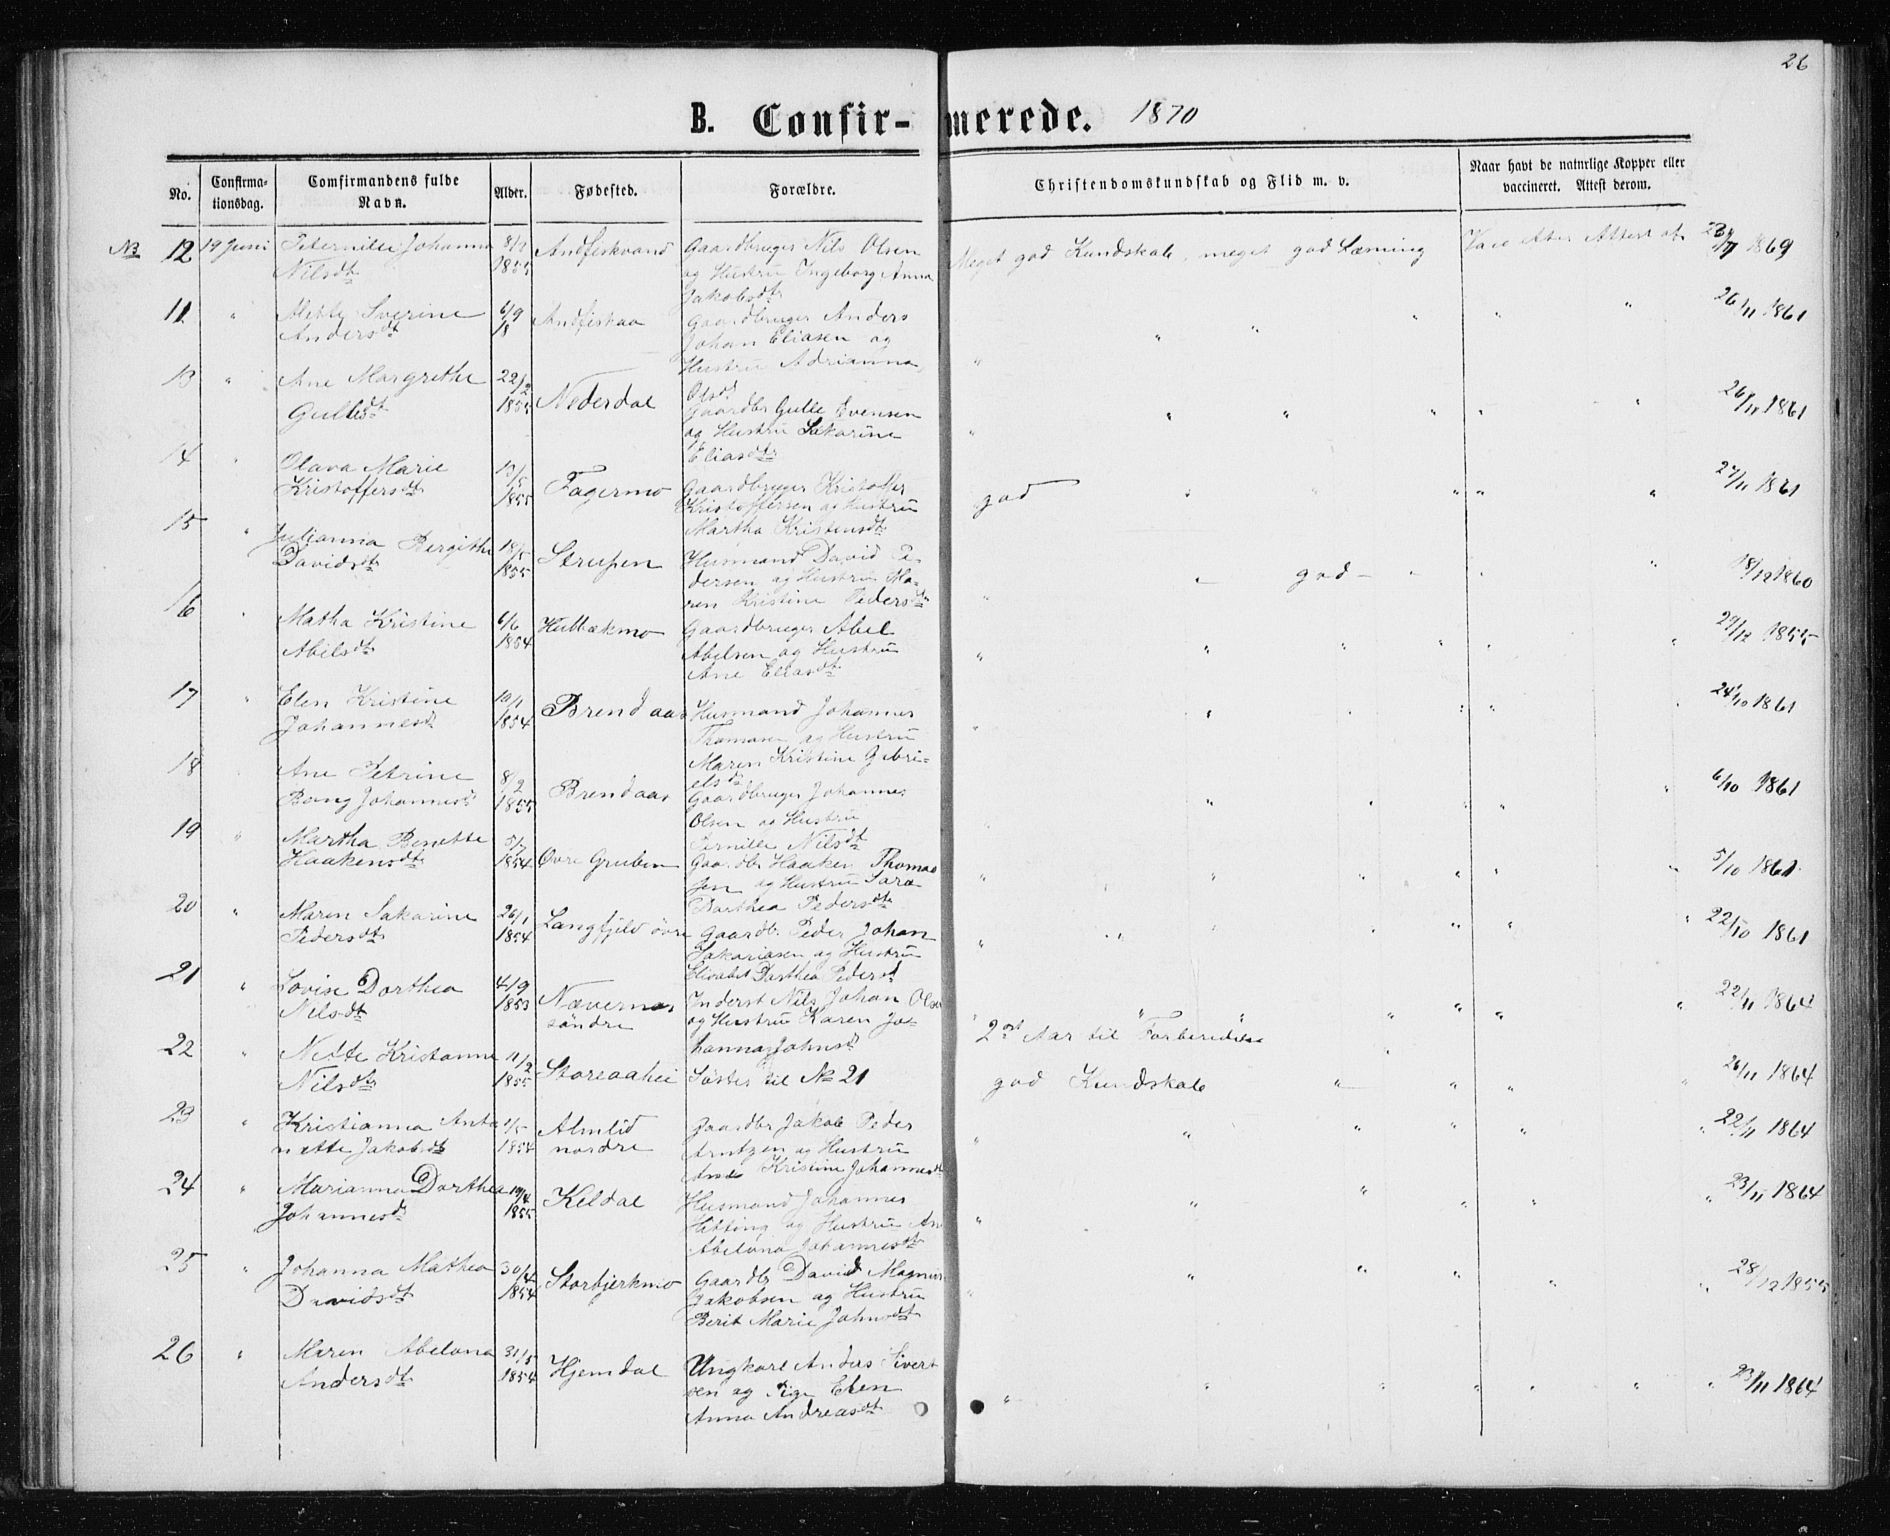 26
B. Confirmerede. 1870
No.
Confirmationsdag.
Comfirmandens fulde Navn.
Alder.
Fødested.
Forældre.
Christendomskundskab og Flid m. v.
Naar havt de naturlige Kopper eller vaccineret. Attest derom.
NB 12 19 Juni Peternille Johanna Andfiskvand Gaardbruger Nils Olsen Meget god Kundskab, meget god Læsning Vac efter Attest af 1869
Nilsdt 1855 og Hustru Ingeborg Anna
Jakobsdt
11 " Mette Sverine 6/9 Andfiskaa Gaardbruger Anders " " " " " 26/11 1861
Andersdt 18 Johan Eliasen og
Hustru Adrianna
Olsd
13 " Ane Margrethe 22/2 Nederdal Gaardbr Gulle Evensen " " " " " " 26/11 1861
Gullesdt 1855 og Hustru Sakarine
Eliasdtr
14 " Olava Marie 13/5 Fagermo Gaardbruger Kristoffer god " " " " " 27/11 1861
Kristoffersdt 1855 Kristoffersen og Hustru
Martha Kristensdt
15 " Julianna Bergithe 18/5 Strupen Husmand David Pe- " god " " " 18/12 1860
Davidsdt 1855 dersen og Hustru Ma-
ren Kristine Pedersdtr
16 " Matha Kristine 6/6 Hulbækmo Gaardbruger Abel " " " " " " 29/12 1855
Abelsdt 1854 Abelsen og Hustru
Ane Eliasdt
17 " Elen Kristine 10/11 Brendaas Husmand Johannes " " " " " 24/10 1861
Johannesdt 1854 Thomasen og Hustru
Maren Kristine Gabri-
elsd
18 Ane Petrine 8/2 Brendaas Gaardbruger Johannes " " " " " 6/10 1861
Bang Johannesd 1855 Olsen og Hustru
Pernille Nilsdt
19 " Martha Benette 5/7 Øvre Gruben Gaardbr Haaken Thomas " " " " " " 5/10 1861
Haakensdt 1854 sen og Hustru Sara
Dorthea Pedersdt
20 " Maren Sakarine 26/1 Langfjeld øvre Gaardbr Peder Johan " " " " " " 22/10 1861
Pedersdt 1854 Sakariasen og Hustru
Elisabet Dorthea Pedersd
21 " Lovise Dorthea 4/9 Nævernes Inderst Nils Johan Olsen " " " " " " 22/11 1864
Nilsdt 1853 söndre og Hustru Karen Jo- 2et Aar til Forberedelse
hanna Johnsd
22 " Nette Kristanna 11/2 Storeaahei Söster til No 21 god Kundskab " " " " 26/11 1864
Nilsdtr 1855
23 " Kristianna Anto 1/5 Almlid Gaardbr Jakob Peder " " " " " " 22/11 1864
nette Jakobsdt 1854 nordre Arntzen og Hustru
Ane Kristine Johannesdt
24 " Marianna Dorthea 10/4 Keldal Husmand Johannes " " " " " " 23/11 1864
Johannesdt 1855 og Hustru An
Abelona Johannesdt
25 " Johanna Mathea 30/4 Storbjerkmo Gaardbr David Magnus " " " " " " 28/12 1855
Davidsdt 1854 Jakobsen og Hustru
Berit Marie Johnsdt
26 " Maren Abelona 31/5 Hjemdal Ungkarl Anders Sivert " " " " " " " 23/11 1864
Andersdt 1854 sen og Pige Elen
Anna Andreasdt